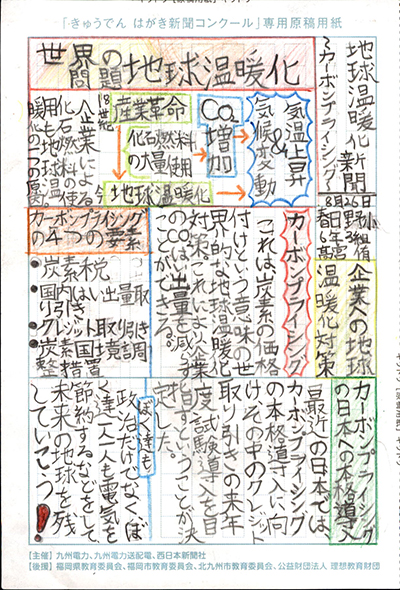 「きゅうでん はがき新聞コンクール」専用原稿用紙
地球温暖化新聞
〜カーボンプライシング〜
8月26日
春日野小
6年3組
世界の問題
地球温暖化
気温上昇
&
気候変動
CO₂
増加
産業革命
化石燃料
の大量使用
地球温暖化
18世紀
今
企業による
化石燃料の使
用も地球温
暖化の一つの原因。
企業への地球
温暖化対策
カーボンプライシング
これは、炭素の価格
付けという意味の世
界的な地球温暖化
対策。これにより企業
のCO₂排出量を減らす
ことができる。
カーボンプライシング
の4つの要素
炭素税
国内はい出量取引
クレジット取り引き
炭素国境調整措置
カーボンプライシング
の日本への本格導入
最近の日本では、
カーボンプライシング
の本格導入に向
け、その中のクレジット
取り引きの来年
度試験導入を目
指すということが決
定した。
ぼく達も
政治だけでなく、ぼ
く達一人一人も電気を
節約するなどをして、
未来の地球を残
していこう!
【主催】九州電力、九州電力送配電、西日本新聞社
【後援】福岡県教育委員会、福岡市教育委員会、北九州市教育委員会、公益財団法人 理想教育財団